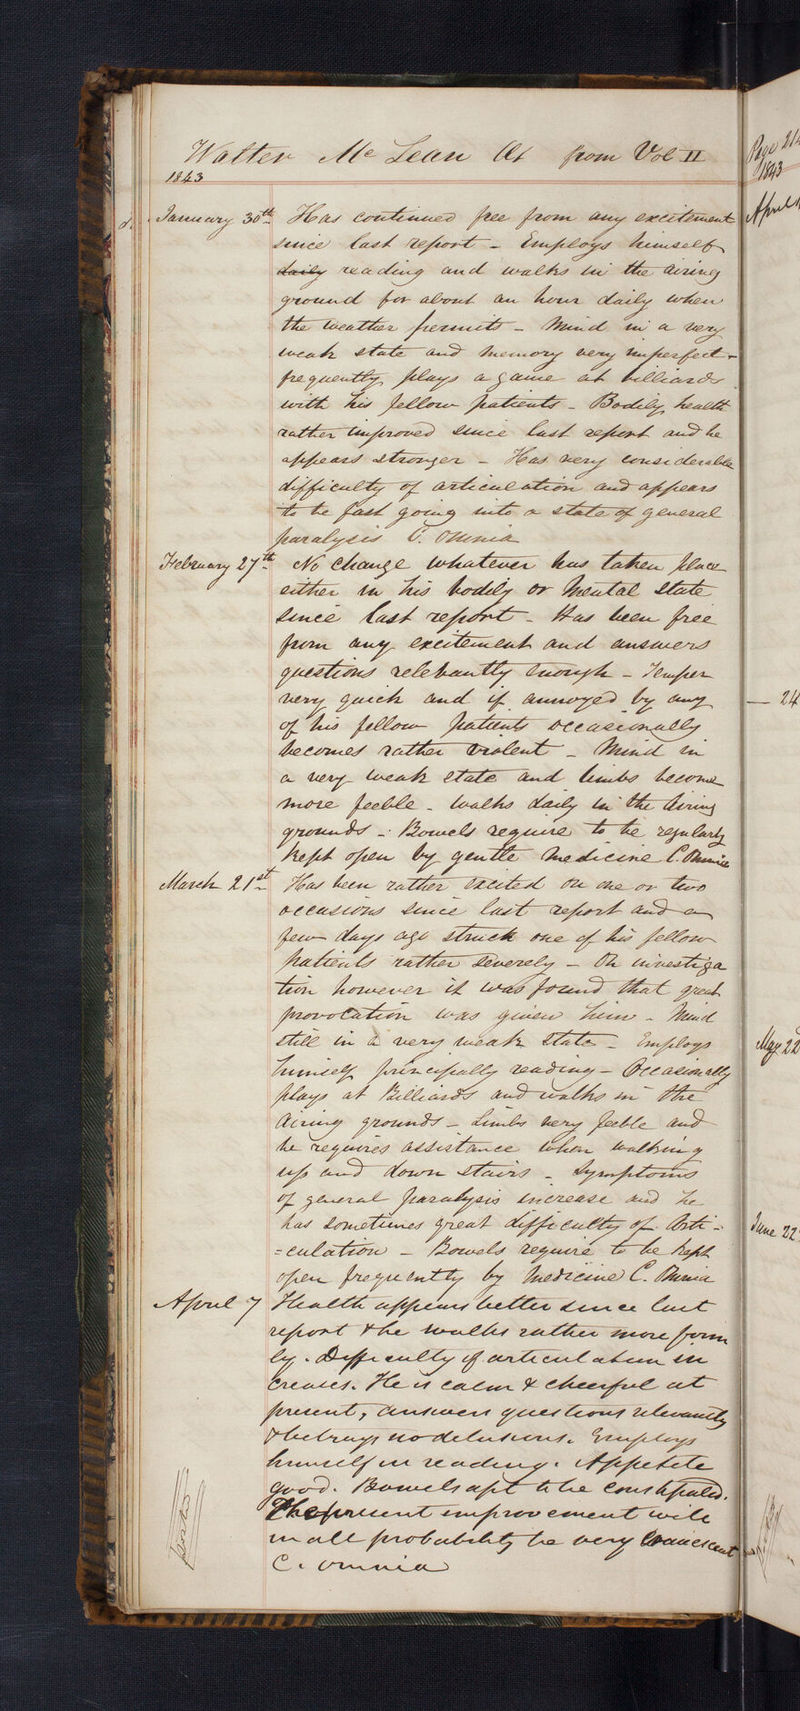 Walter McLean from Vol II
1843
January 30th Has continued free from any excitement
since last report - Employs himself
daily reading and walks in the airing
ground for about an hour daily when
the weather permits - Mind in a very
weak state and memory very imperfect -
frequently plays a game at billiards
with his fellow patients - Bodily health
rather improved since last report and he
appears stronger - Has very considerable
difficulty of articulation and appears
to be fast going into a state of general
paralysis C. Omnia
February 27th No change whatever has taken place
either in his bodily or mental state
since last report - Has been free
from any excitement and answers
questions relevantly enough - Temper
very quick and if annoyed by any
of his fellow patients occasionally
becomes rather violent - Mind in
a very weak state and limbs become
more feeble - walks daily in the airing
grounds - Bowels require to be regularly
kept open by gentle medicine C. Omnia
March 21st Has been rather excited on one or two
occasions since last report and a
few days ago struck one of his fellow
patients rather severely - On investiga
tion however it was found that great
provocation was given him - Mind
still in a very weak state - Employs
himself principally reading - Occasionally
plays at Billiards and walks in the
airing grounds - Limbs very feeble and
he requires assistance when walking
up and down stairs - Symptoms
of general paralysis increase and he
has sometimes great difficulty of Arti-
=culation - Bowels require to be kept
open frequently by medicine C. Omnia
April 7 Health appears better since last
report & he walks rather more firm
ly. Difficulty of articulation in
creases. He is calm & cheerful at
present, answers questions relevantly
& betrays no delusions. Employs
himself in reading. Appetite
good. Bowels apt to be constipated.
The present improvement will
in all probability be very evanescent
C. omnia
Page 214
1843
April
— 24
May 22
June 22